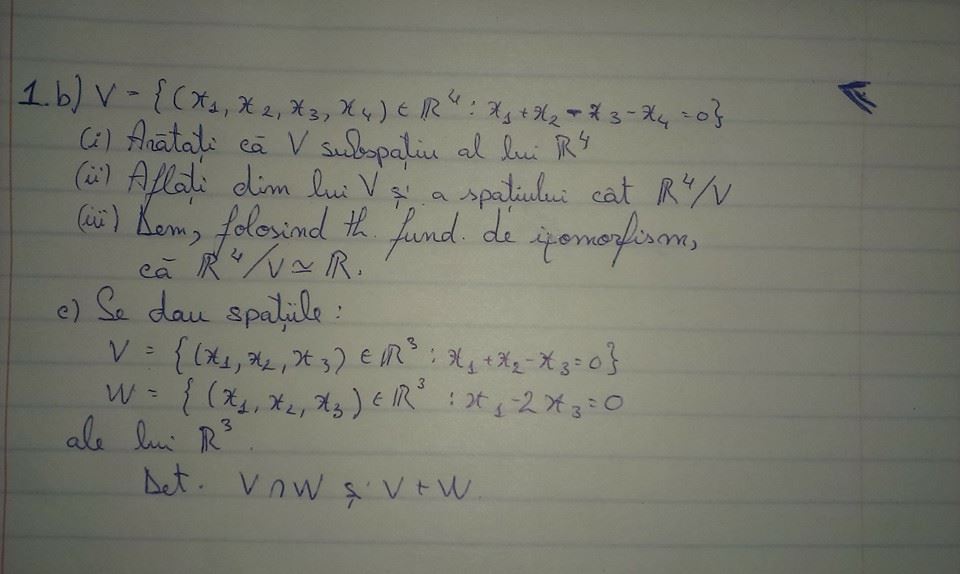 1.b) V = {(x₁, x₂, x₃, x₄) ∈ ℝ⁴ : x₁+x₂-x₃-x₄=0}
(i) Arătați că V subspațiu al lui ℝ⁴
(ii) Aflați dim lui V și a spațiului cât ℝ⁴/V
(iii) Dem, folosind th. fund. de izomorfism,
că ℝ⁴/V ≃ ℝ.
c) Se dau spațiile:
V = {(x₁, x₂, x₃) ∈ ℝ³ : x₁+x₂-x₃=0}
W = {(x₁, x₂, x₃) ∈ ℝ³ : x₁-2x₃=0
ale lui ℝ³.
Det. V∩W și V+W.